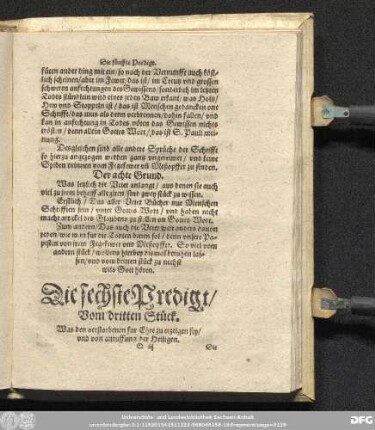 Die fünffte Predigt.
füren ander ding mit ein/ so nach der Vernunfft auch köst-
lich scheinen/aber im Fewer/das ist/ im Creutz vnd grossen
schweren anfechtungen des Gewissens/ sonderlich im letzten
Todes stündlein wird eines jeden Baw erkant/ was Holtz/
Hew vnd Stoppeln ist/ das ist Menschen gedancken one
Schrifft/ das mus als denn verbrennen/ dahin fallen/ vnd
kan in anfechtung in Todes nöten das Gewissen nichts
trösten/ denn allein Gottes Wort/ das ist S. Pauli mei-
nung.
Desgleichen sind alle andere Sprüche der Schrifft
so hierzu angezogen werden gantz vngereimet/ vnd keine
Sylben drinnen vom Fegefewer vñ Meßopffer zu finden.
Der achte Grund.
Was letzlich die Väter anlangt/ aus denen sie auch
viel zu jrem behelff allegiren sind zwey stück zu wissen.
Erstlich/ Das aller Veter Bücher nur Menschen
Schrifften sein/ vnter Gottes Wort/ vnd haben nicht
macht artickel des Glaubens zu stellen an Gottes Wort.
Zum andern/ Das auch die Veter weit anders dauon
reden/ wie man für die Todten bitten sol/ denn vnsere Pa-
pisten von jrem Fegefewer vnd Meßopffer. So viel vom
andern stück/ wollens hierbey dismal beruhen las-
sen/vnd vom dritten stück zu nechst
wils Gott hören.
Die sechste Predigt/
Vom dritten Stück.
Was den verstorbenen für Ehre zu erzeigen sey/
vnd von anruffung der Heiligen.
Die
Universitäts- und Landesbibliothek Sachsen-Anhalt
DFG